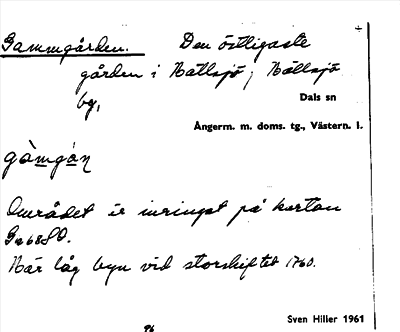 Gammgården. Den östligaste
gården i Nällsjö, Nällsjö
by,
Dals sn
Ångerm. m. doms. tg., Västern. l.
gàmgán
Området är inringat på kartan
Här låg byn vid storskiftet 1760.
Sven Hiller 1961
96